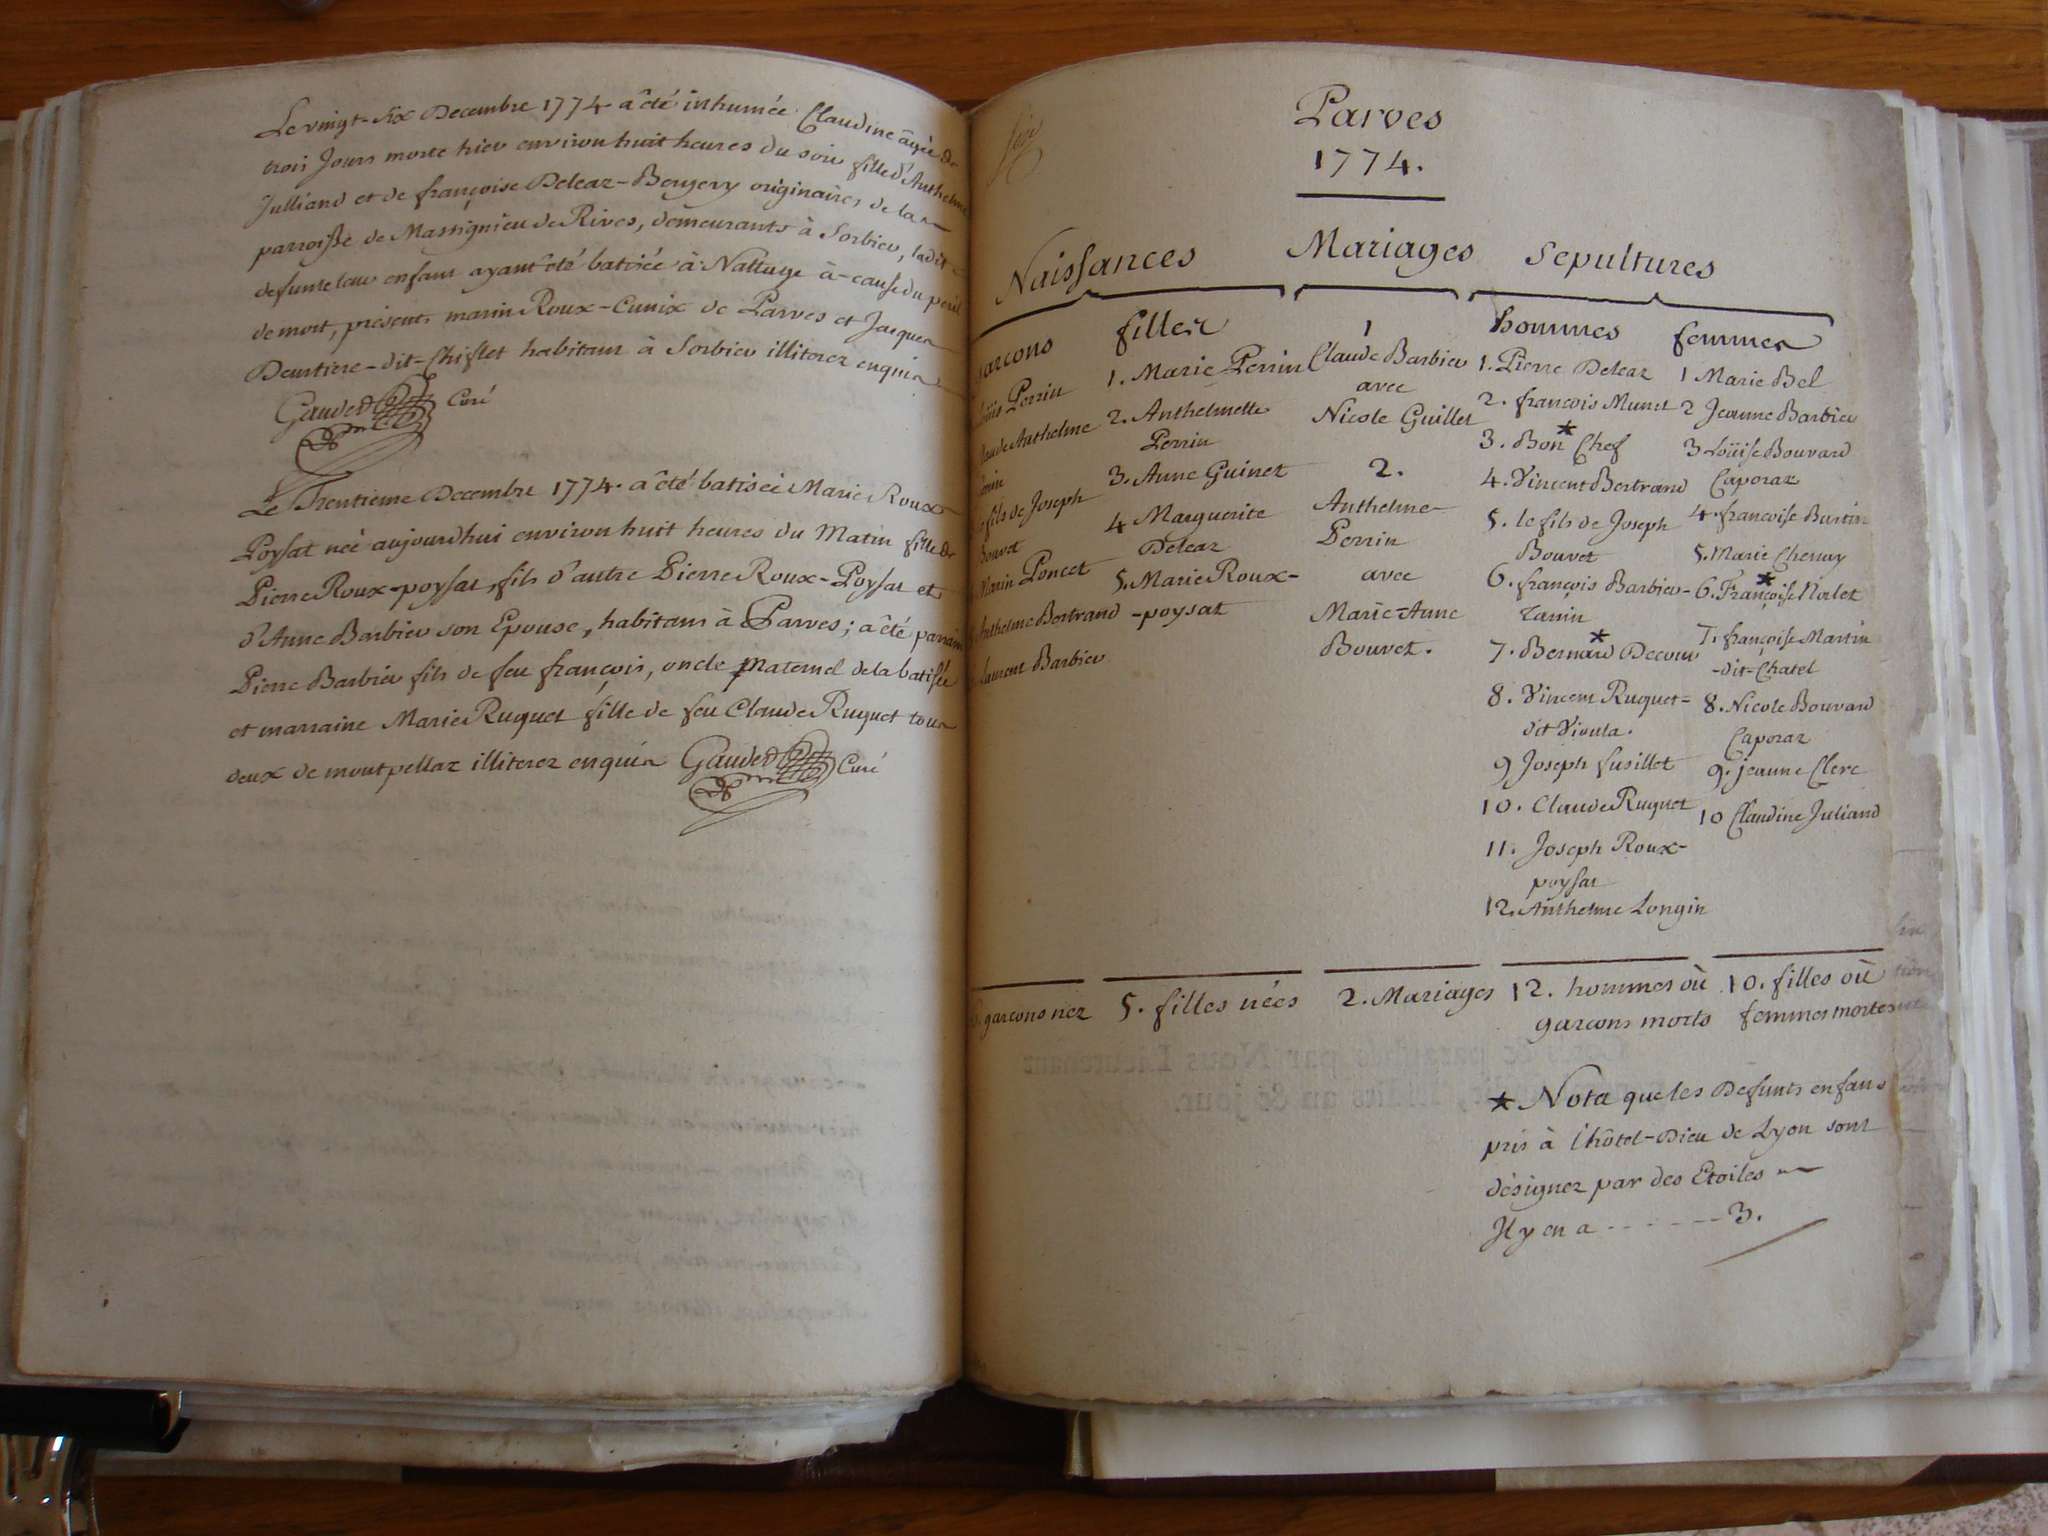 Le vingt-six Decembre 1774 a été inhumée Claudine âgée de
trois Jours morte hier environ huit heures du soir fille d'Anthelme
Julliand et de françoise Deleaz-Bengery originaires de la
parroisse de Massignieu de Rives, demeurants à Sorbier, ladite
defunte leur enfant ayant été batisée à Nattage à-cause du peril
de mort, présents marin Roux-Cunix de Parves et Jacques
dit-Chiflet habitans à Sorbier illiterez enquis
Gaudet Curé
Le Trentieme Decembre 1774. a été batisée Marie Roux
Poysat née aujourdhui environ huit heures du Matin fille de
Pierre Roux-poysat, fils d'autre Pierre Roux-Poysat et
d'Anne Barbier son Epouse, habitans à Parves; a été parrain
Pierre Barbier fils de feu françois, oncle Maternel de la batisée
et marraine Marie Ruguet fille de feu Claude Ruguet tous
deux de montpellaz illiterez enquis Gaudet Curé
Parves
1774.
Naissances
Mariages
Sepultures
garçons
filles
hommes
femmes
Perrin
Claude Anthelme
fils de Joseph
Bouvet
Marin Poncet
Anthelme Bertrand
Laurent Barbier
1. Marie Perrin
2. Anthelmette
Perrin
3. Anne Guinet
4 Marguerite
Deleaz
5. Marie Roux-
-poysat
1
Claude Barbier
avec
Nicole Guillet
2.
Anthelme
Perrin
avec
Marie-Anne
Bouvet.
1. Pierre Deleaz
2. françois Munet
3. Bon * Chef
4. Vincent Bertrand
5. le fils de Joseph
Bouvet
6. françois Barbier-
Tanin
*
7. Bernard Decour
8. Vincent Ruguet-
dit Vioula.
9 Joseph fusillet
10. Claude Ruguet
11. Joseph Roux-
poysat
12. Anthelme Longin
1 Marie Bel
2 Jeanne Barbier
3 Loüise Bouvard
Caporaz
4. françoise Burtin
5. Marie Chenay
*
6. Françoise Norlet
7. françoise Martin
-dit-Chatel
8. Nicole Bouvard
Caporaz
9. jeanne Clerc
10 Claudine Juliand
garçons nez
5. filles nées
2. Mariages
12. hommes où
garçons morts
10. filles où
femmes mortes
* Nota que les Defunts enfans
pris à l'hôtel-Dieu de Lyon sont
désignez par des Etoiles
Il y en a - - - - - - 3.